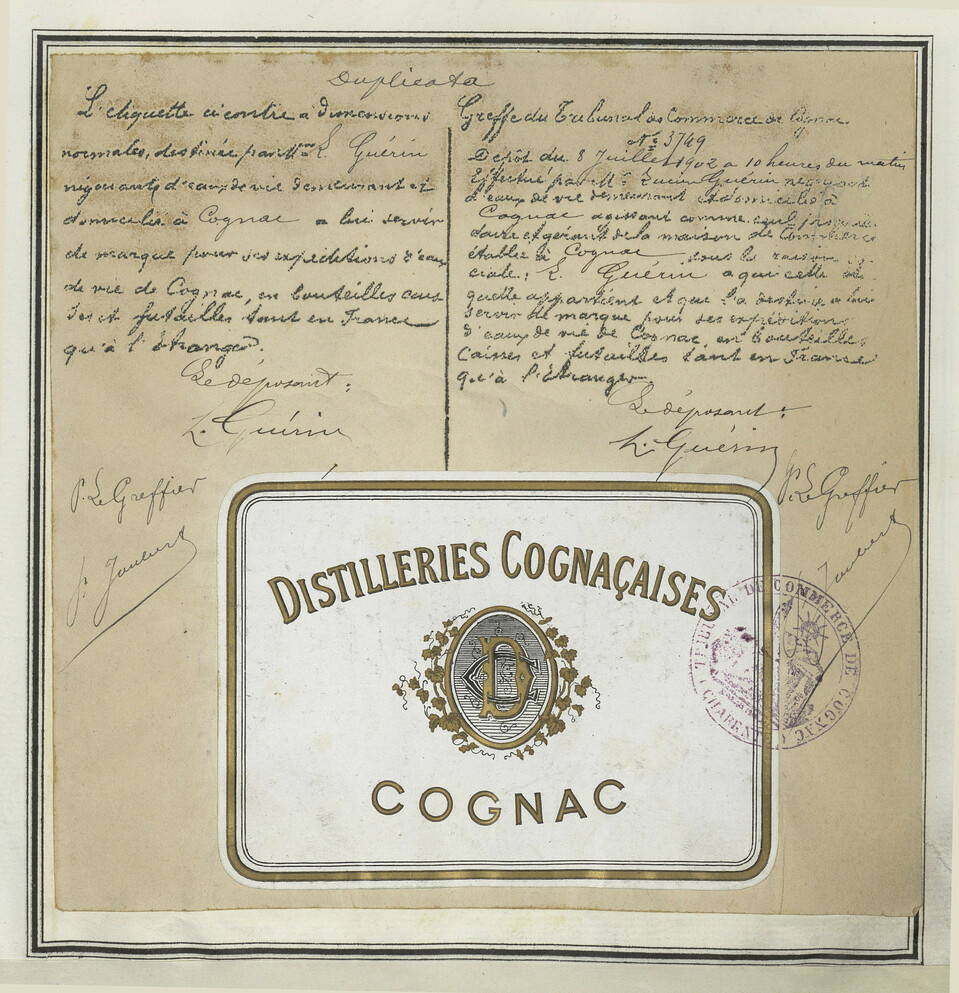 Duplicata
L'étiquette ci contre a dimensions
normales, destinée par Mr L. Guérin
négociant d'eaux de vie demeurant et
domicilié à Cognac a lui servir
de marque pour ses expéditions d'eaux
de vie de Cognac, en bouteilles cais
ses et futailles tant en France
qu'à l'étranger.
Le déposant:
L. Guérin
P. Le Greffier
Greffe du Tribunal de Commerce de Cognac.
No 3749
Dépôt du 8 Juillet 1902 a 10 heures du matin
Effectué par Mr Lucien Guérin négociant
d'eaux de vie demeurant et domicilié à
Cognac agissant comme seul proprié
taire et gérant de la maison de Commerce
établie à Cognac sous la raison so
ciale: L. Guérin a qui cette éti
quette appartient et que l'a destine a lui
servir de marque pour ses expéditions
d'eaux de vie de Cognac, en bouteilles
caisses et futailles tant en France
qu'à l'étranger.
Le déposant:
L. Guérin
P. Le Greffier
DISTILLERIES COGNAÇAISES
COGNAC
TRIBUNAL DE COMMERCE DE COGNAC